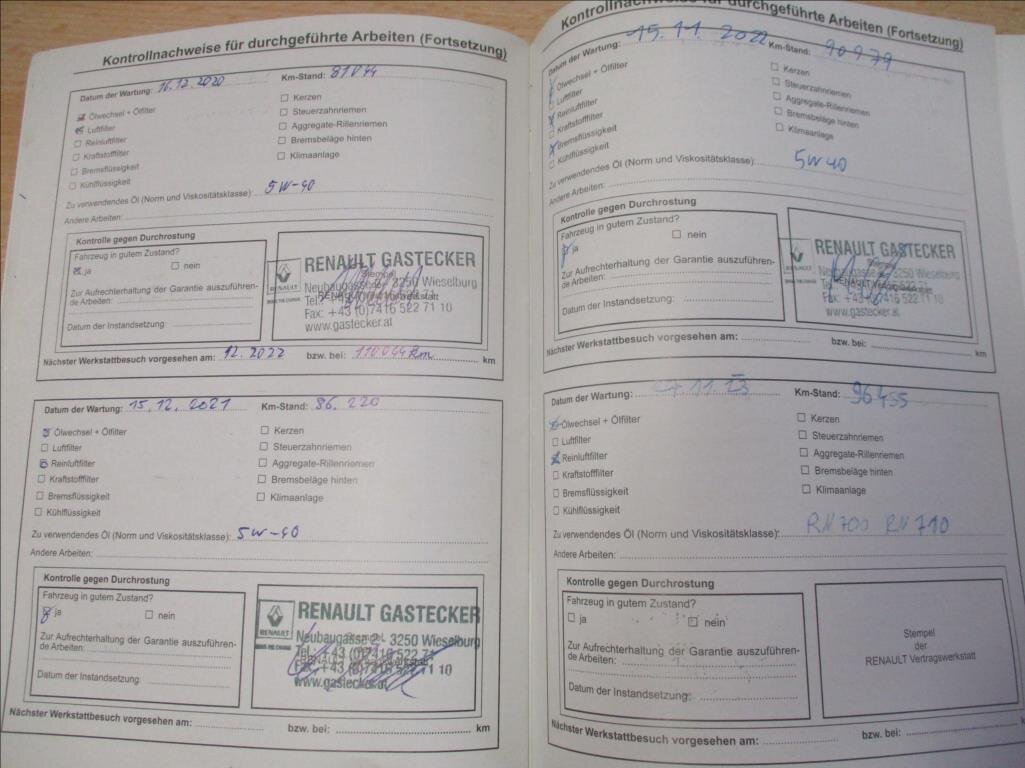 Kontrollnachweise für durchgeführte Arbeiten (Fortsetzung)
Datum der Wartung: 16.12.2020 Km-Stand: 81044
Ölwechsel + Ölfilter
Luftfilter
Reinluftfilter
Kraftstofffilter
Bremsflüssigkeit
Kühlflüssigkeit
Kerzen
Steuerzahnriemen
Aggregate-Rillenriemen
Bremsbeläge hinten
Klimaanlage
Zu verwendendes Öl (Norm und Viskositätsklasse): 5W-40
Andere Arbeiten:
Kontrolle gegen Durchrostung
Fahrzeug in gutem Zustand?
ja nein
Zur Aufrechterhaltung der Garantie auszuführen-
de Arbeiten:
Datum der Instandsetzung:
RENAULT GASTECKER
Neubaugasse 2 / 3250 Wieselburg
Tel.: +43 (0)7416 522 71
Fax: +43 (0)7416 522 71 10
www.gastecker.at
RENAULT
Nächster Werkstattbesuch vorgesehen am: 12.2022 bzw. bei: 110044 km
Datum der Wartung: 15.12.2021 Km-Stand: 86.220
Ölwechsel + Ölfilter
Luftfilter
Reinluftfilter
Kraftstofffilter
Bremsflüssigkeit
Kühlflüssigkeit
Kerzen
Steuerzahnriemen
Aggregate-Rillenriemen
Bremsbeläge hinten
Klimaanlage
Zu verwendendes Öl (Norm und Viskositätsklasse): 5W-40
Andere Arbeiten:
Kontrolle gegen Durchrostung
Fahrzeug in gutem Zustand?
ja nein
Zur Aufrechterhaltung der Garantie auszuführen-
de Arbeiten:
Datum der Instandsetzung:
RENAULT GASTECKER
Neubaugasse 2 3250 Wieselburg
Tel.: +43 (0)7416 522 71
Fax: +43 (0)7416 522 71 10
www.gastecker.at
RENAULT
Nächster Werkstattbesuch vorgesehen am: bzw. bei: km
Kontrollnachweise für durchgeführte Arbeiten (Fortsetzung)
Datum der Wartung: 15.11.2022 Km-Stand: 90979
Ölwechsel + Ölfilter
Luftfilter
Reinluftfilter
Kraftstofffilter
Bremsflüssigkeit
Kühlflüssigkeit
Kerzen
Steuerzahnriemen
Aggregate-Rillenriemen
Bremsbeläge hinten
Klimaanlage
Zu verwendendes Öl (Norm und Viskositätsklasse): 5W40
Andere Arbeiten:
Kontrolle gegen Durchrostung
Fahrzeug in gutem Zustand?
ja nein
Zur Aufrechterhaltung der Garantie auszuführen-
de Arbeiten:
Datum der Instandsetzung:
RENAULT GASTECKER
Neubaugasse 2 3250 Wieselburg
Tel.: +43 (0)7416 522 71
Fax: +43 (0)7416 522 71 10
www.gastecker.at
Nächster Werkstattbesuch vorgesehen am: bzw. bei: km
Datum der Wartung: 11.23 Km-Stand: 96455
Ölwechsel + Ölfilter
Luftfilter
Reinluftfilter
Kraftstofffilter
Bremsflüssigkeit
Kühlflüssigkeit
Kerzen
Steuerzahnriemen
Aggregate-Rillenriemen
Bremsbeläge hinten
Klimaanlage
Zu verwendendes Öl (Norm und Viskositätsklasse): RN700 RN710
Andere Arbeiten:
Kontrolle gegen Durchrostung
Fahrzeug in gutem Zustand?
ja nein
Zur Aufrechterhaltung der Garantie auszuführen-
de Arbeiten:
Datum der Instandsetzung:
Stempel
der
RENAULT Vertragswerkstatt
Nächster Werkstattbesuch vorgesehen am: bzw. bei: km